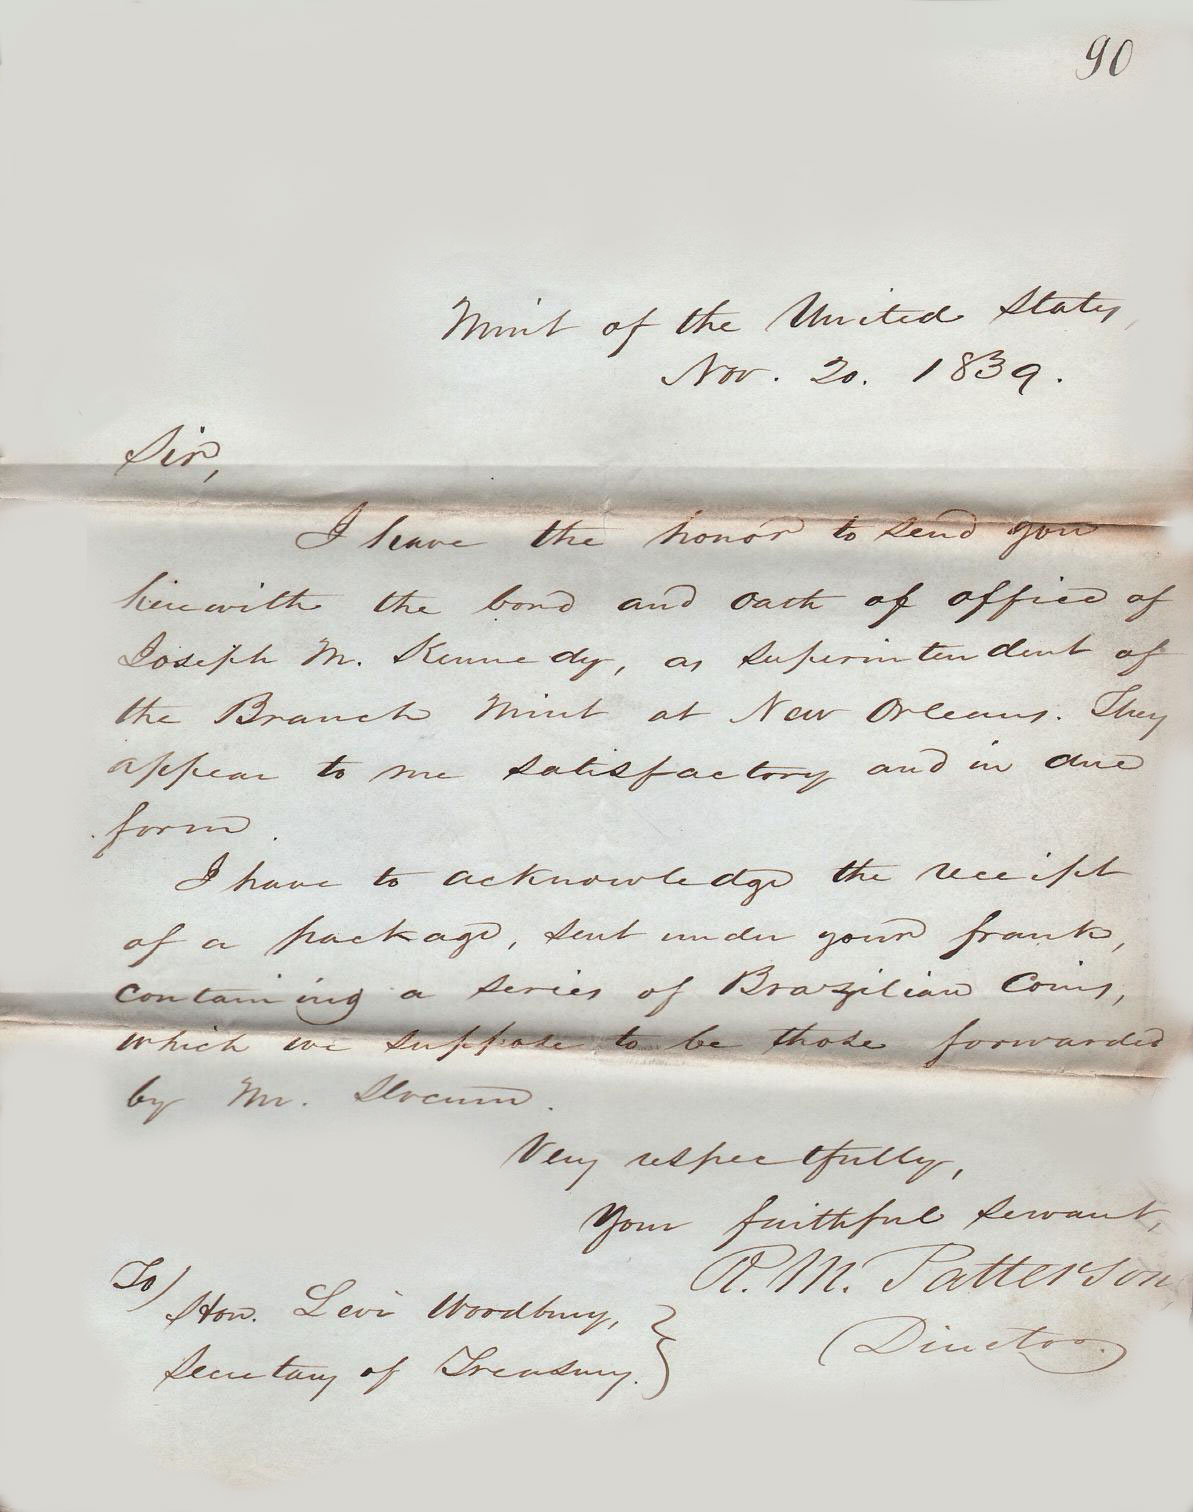 90
Mint of the United States,
Nov. 20. 1839.
Sir,
I have the honor to send you
herewith the bond and oath of office of
Joseph M. Kennedy, as superintendent of
the Branch Mint at New Orleans. They
appear to me satisfactory and in due
form.
I have to acknowledge the receipt
of a package, sent under your frank,
containing a series of Brazilian Coins,
which we suppose to be those forwarded
by Mr. Slocum.
Very respectfully,
Your faithful servant,
R. M. Patterson
Director.
To)
Hon. Levi Woodbury,
Secretary of Treasury.